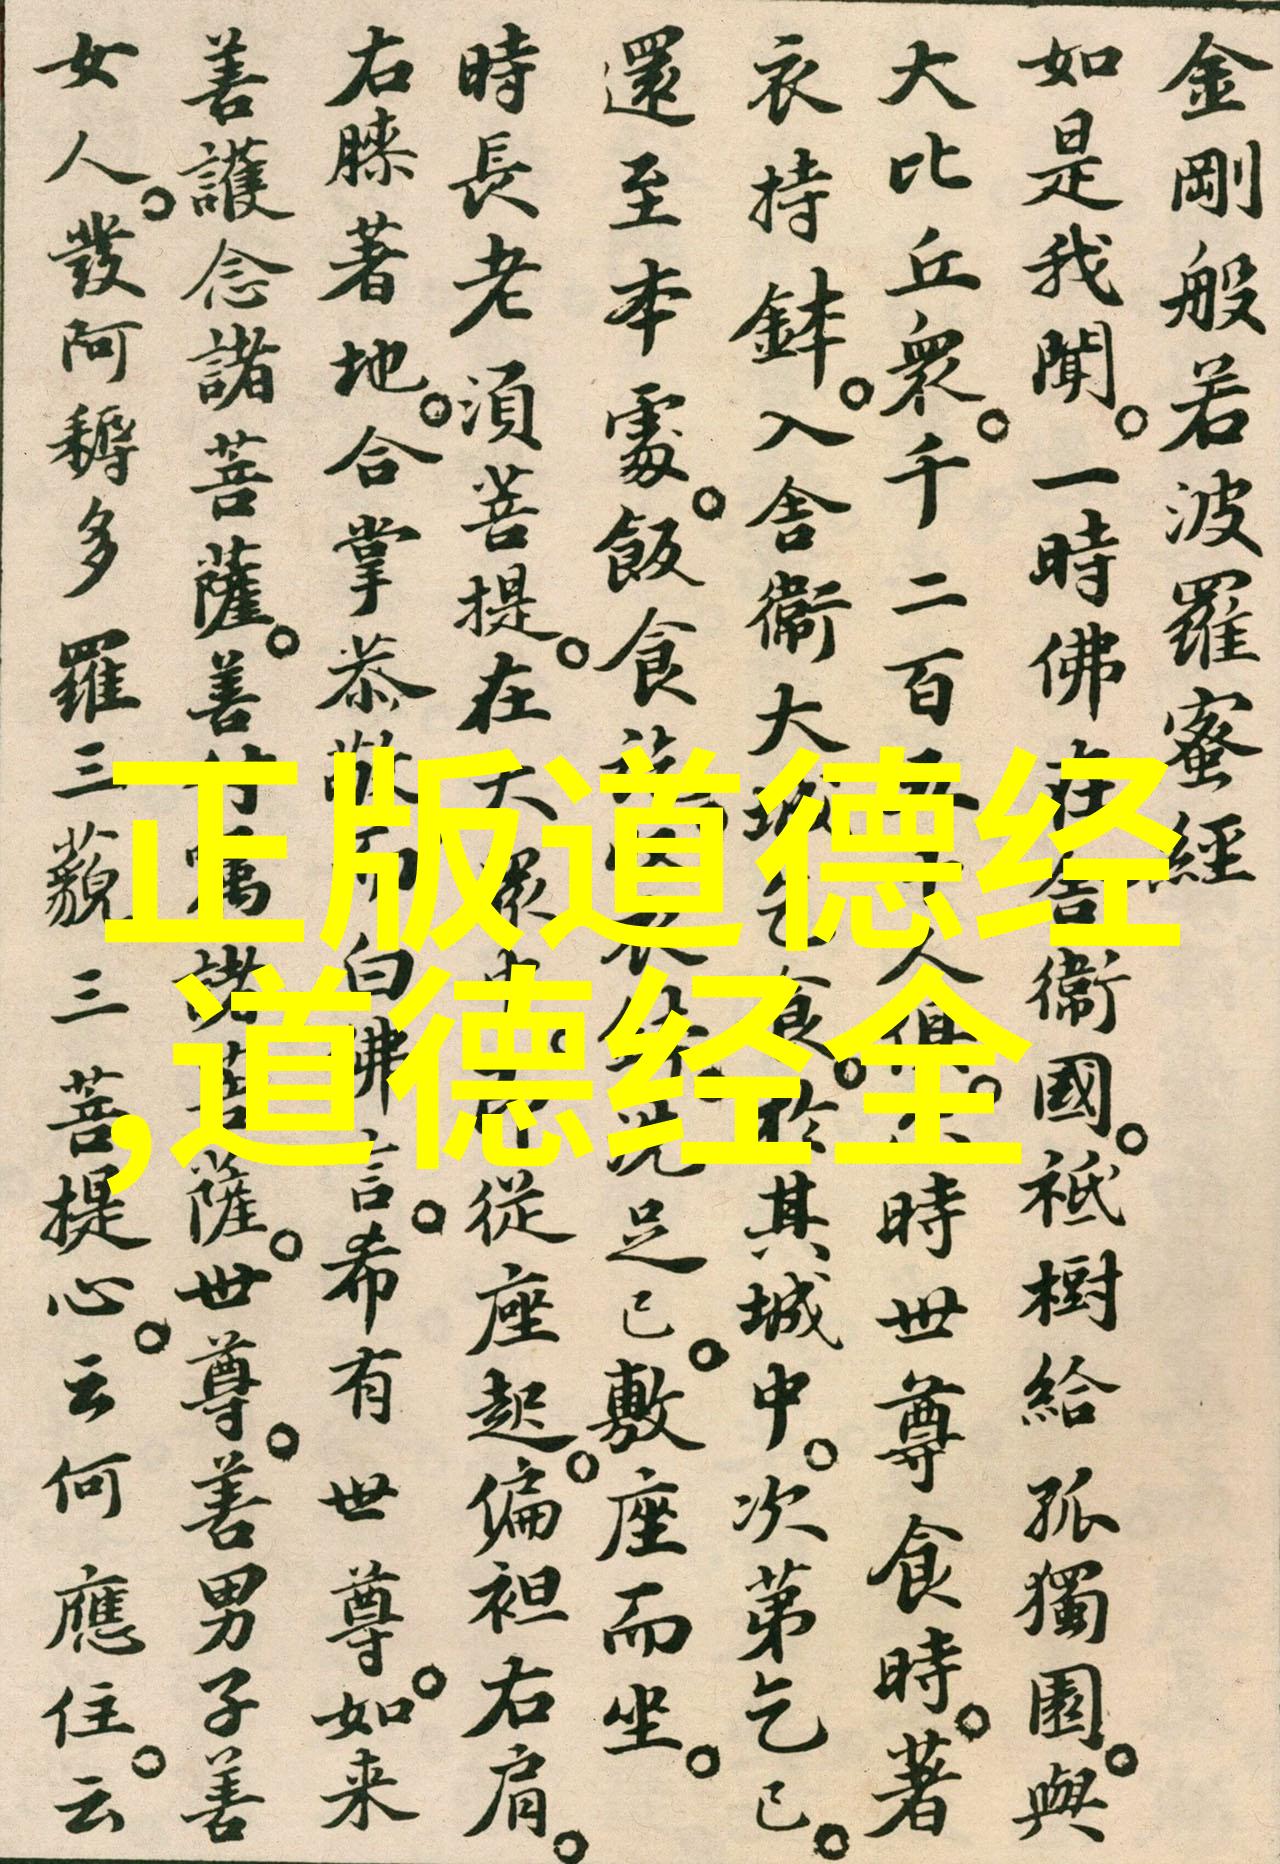 金剛般若波羅蜜經
如是我聞。一時佛在舍衞國。祇樹給孤獨園。與
大比丘衆。千二百五十人俱。尒時世尊食時。著
衣持鉢。入舍衞大城乞食。於其城中。次第乞已。
還至本處。飯食訖。收衣鉢。洗足已。敷座而坐。
時長老須菩提。在大衆中。即從座起。偏袒右肩。
右膝著地。合掌恭敬而白佛言。希有世尊。如来
善護念諸菩薩。善付嘱諸菩薩。世尊。善男子善
女人。發阿耨多羅三藐三菩提心。云何應住。云
正版道德经
,道德经全